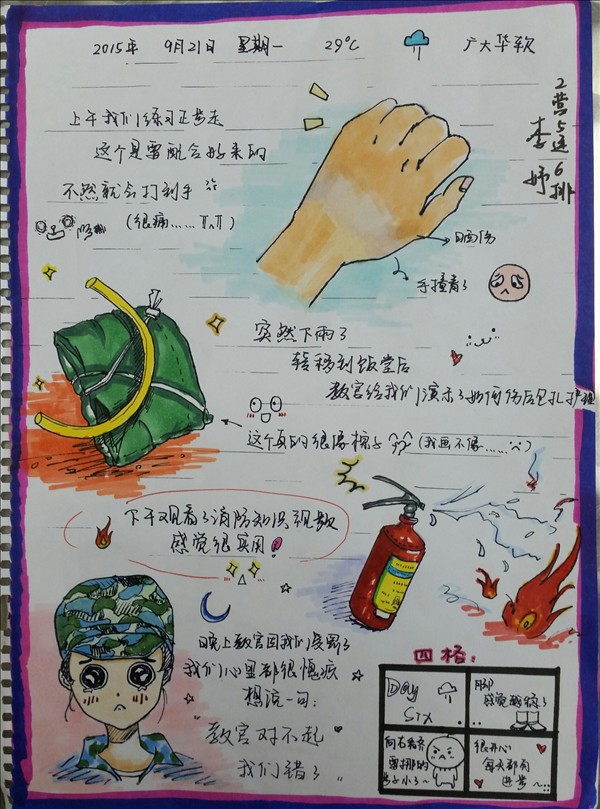 2015年 9月21日 星期一 29℃ 广大华软
2营5连6排
李妤
上午我们练习正步走
这个是要配合好来的
不然就会打到手
(很痛……T_T)
手撞青了
突然下雨了
转移到饭堂后
教官给我们演示了如何伤后包扎护理
这个真的很像粽子 (我画不像……)
下午观看了消防知识视教
感觉很实用!
晚上教官因我们受罚了
我们心里都很愧疚
想说一句:
"教官对不起
我们错了"
四格:
Day
Six
脚
感觉越痛了
向右看齐
要挪的
步子小了~
很开心
每天都有
进步~